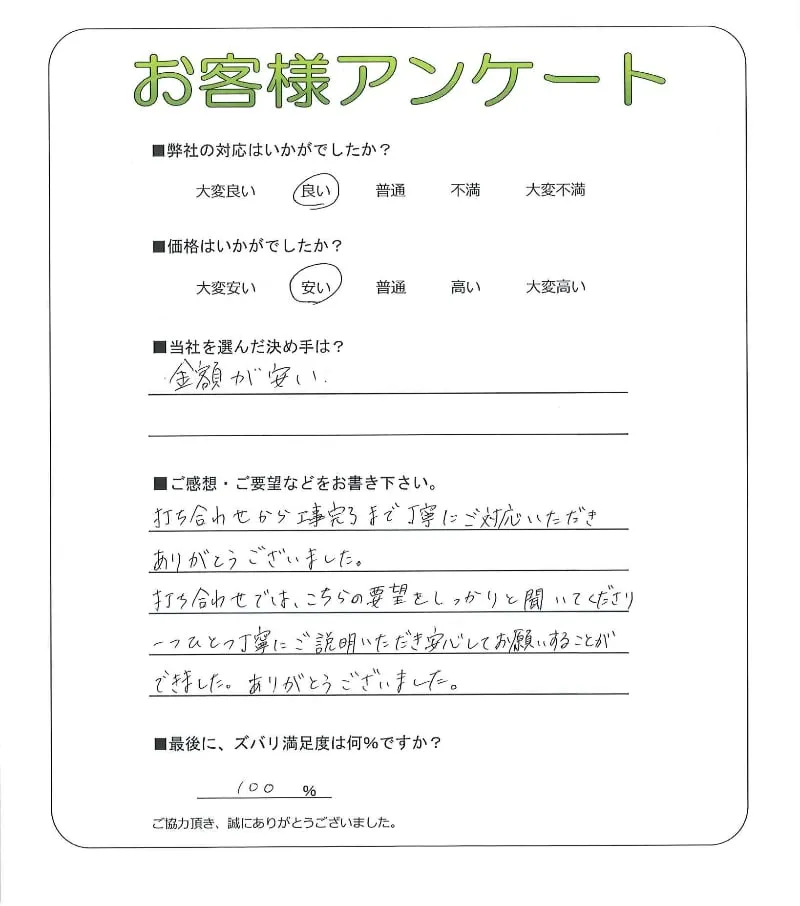 お客様アンケート
■弊社の対応はいかがでしたか？
大変良い 良い 普通 不満 大変不満
■価格はいかがでしたか？
大変安い 安い 普通 高い 大変高い
■当社を選んだ決め手は？
金額が安い.
■ご感想・ご要望などをお書き下さい。
打ち合わせから工事完了まで丁寧にご対応いただき
ありがとうございました。
打ち合わせでは、こちらの要望をしっかりと聞いてくださり
一つひとつ丁寧にご説明いただき安心してお願いすることが
できました。ありがとうございました。
■最後に、ズバリ満足度は何%ですか？
100 %
ご協力頂き、誠にありがとうございました。